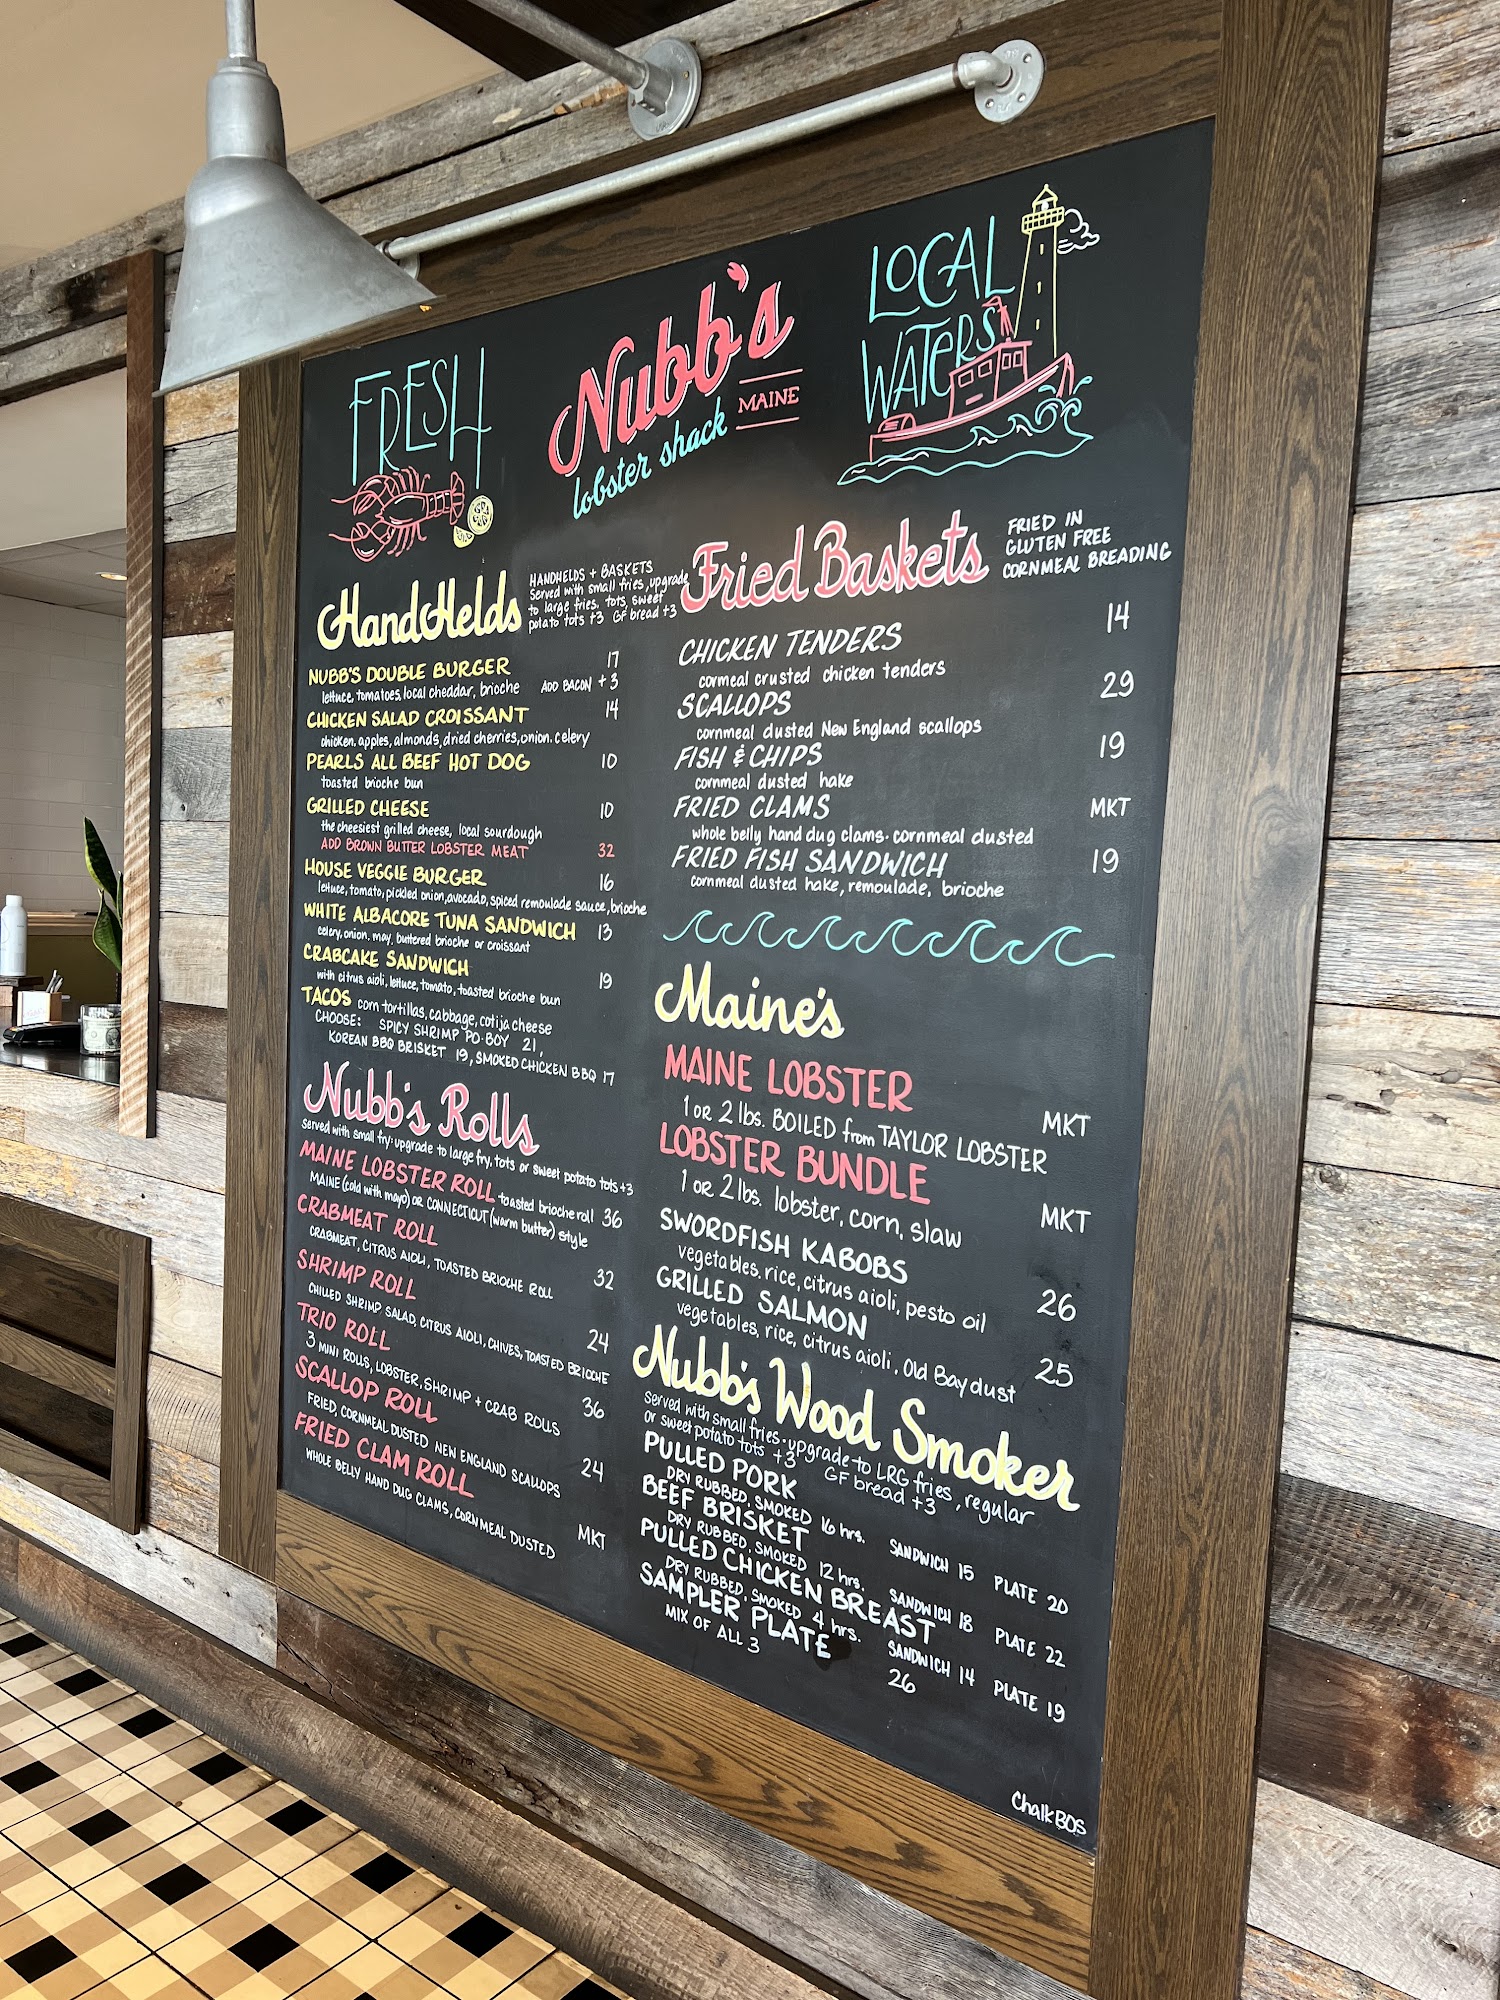 FRESH
Nubb's
lobster shack
MAINE
LOCAL
WATERS
HandHelds
HANDHELDS + BASKETS
Served with small fries, upgrade
to large fries, tots, sweet
potato tots +3 GF bread +3
NUBB'S DOUBLE BURGER 17
lettuce, tomatoes, local cheddar, brioche ADD BACON +3
CHICKEN SALAD CROISSANT 14
chicken, apples, almonds, dried cherries, onion, celery
PEARLS ALL BEEF HOT DOG 10
toasted brioche bun
GRILLED CHEESE 10
the cheesiest grilled cheese, local sourdough
ADD BROWN BUTTER LOBSTER MEAT 32
HOUSE VEGGIE BURGER 16
lettuce, tomato, pickled onion, avocado, spiced remoulade sauce, brioche
WHITE ALBACORE TUNA SANDWICH 13
celery, onion, may, buttered brioche or croissant
CRABCAKE SANDWICH 19
with citrus aioli, lettuce, tomato, toasted brioche bun
TACOS corn tortillas, cabbage, cotija cheese
CHOOSE: SPICY SHRIMP PO-BOY 21,
KOREAN BBQ BRISKET 19, SMOKED CHICKEN BBQ 17
Nubb's Rolls
served with small fry; upgrade to large fry, tots or sweet potato tots +3
MAINE LOBSTER ROLL toasted brioche roll 36
MAINE (cold with mayo) OR CONNECTICUT (warm butter) style
CRABMEAT ROLL 32
CRABMEAT, CITRUS AIOLI, TOASTED BRIOCHE ROLL
SHRIMP ROLL 24
CHILLED SHRIMP SALAD, CITRUS AIOLI, CHIVES, TOASTED BRIOCHE
TRIO ROLL 36
3 MINI ROLLS, LOBSTER, SHRIMP + CRAB ROLLS
SCALLOP ROLL 24
FRIED, CORNMEAL DUSTED NEW ENGLAND SCALLOPS
FRIED CLAM ROLL MKT
WHOLE BELLY HAND DUG CLAMS, CORNMEAL DUSTED
Fried Baskets
FRIED IN
GLUTEN FREE
CORNMEAL BREADING
CHICKEN TENDERS 14
cormeal crusted chicken tenders
SCALLOPS 29
cornmeal dusted New England scallops
FISH & CHIPS 19
cornmeal dusted hake
FRIED CLAMS MKT
whole belly hand dug clams-cornmeal dusted
FRIED FISH SANDWICH 19
cornmeal dusted hake, remoulade, brioche
Maine's
MAINE LOBSTER MKT
1 OR 2 lbs. BOILED from TAYLOR LOBSTER
LOBSTER BUNDLE MKT
1 OR 2 lbs. lobster, corn, slaw
SWORDFISH KABOBS 26
vegetables, rice, citrus aioli, pesto oil
GRILLED SALMON 25
vegetables, rice, citrus aioli, Old Bay dust
Nubb's Wood Smoker
served with small fries-upgrade to LRG fries, regular
or sweet potato tots +3 GF bread +3
PULLED PORK
DRY RUBBED, SMOKED 16 hrs. SANDWICH 15 PLATE 20
BEEF BRISKET
DRY RUBBED, SMOKED 12 hrs. SANDWICH 18 PLATE 22
PULLED CHICKEN BREAST
DRY RUBBED, SMOKED 4 hrs. SANDWICH 14 PLATE 19
SAMPLER PLATE 26
MIX OF ALL 3
ChalkBOS